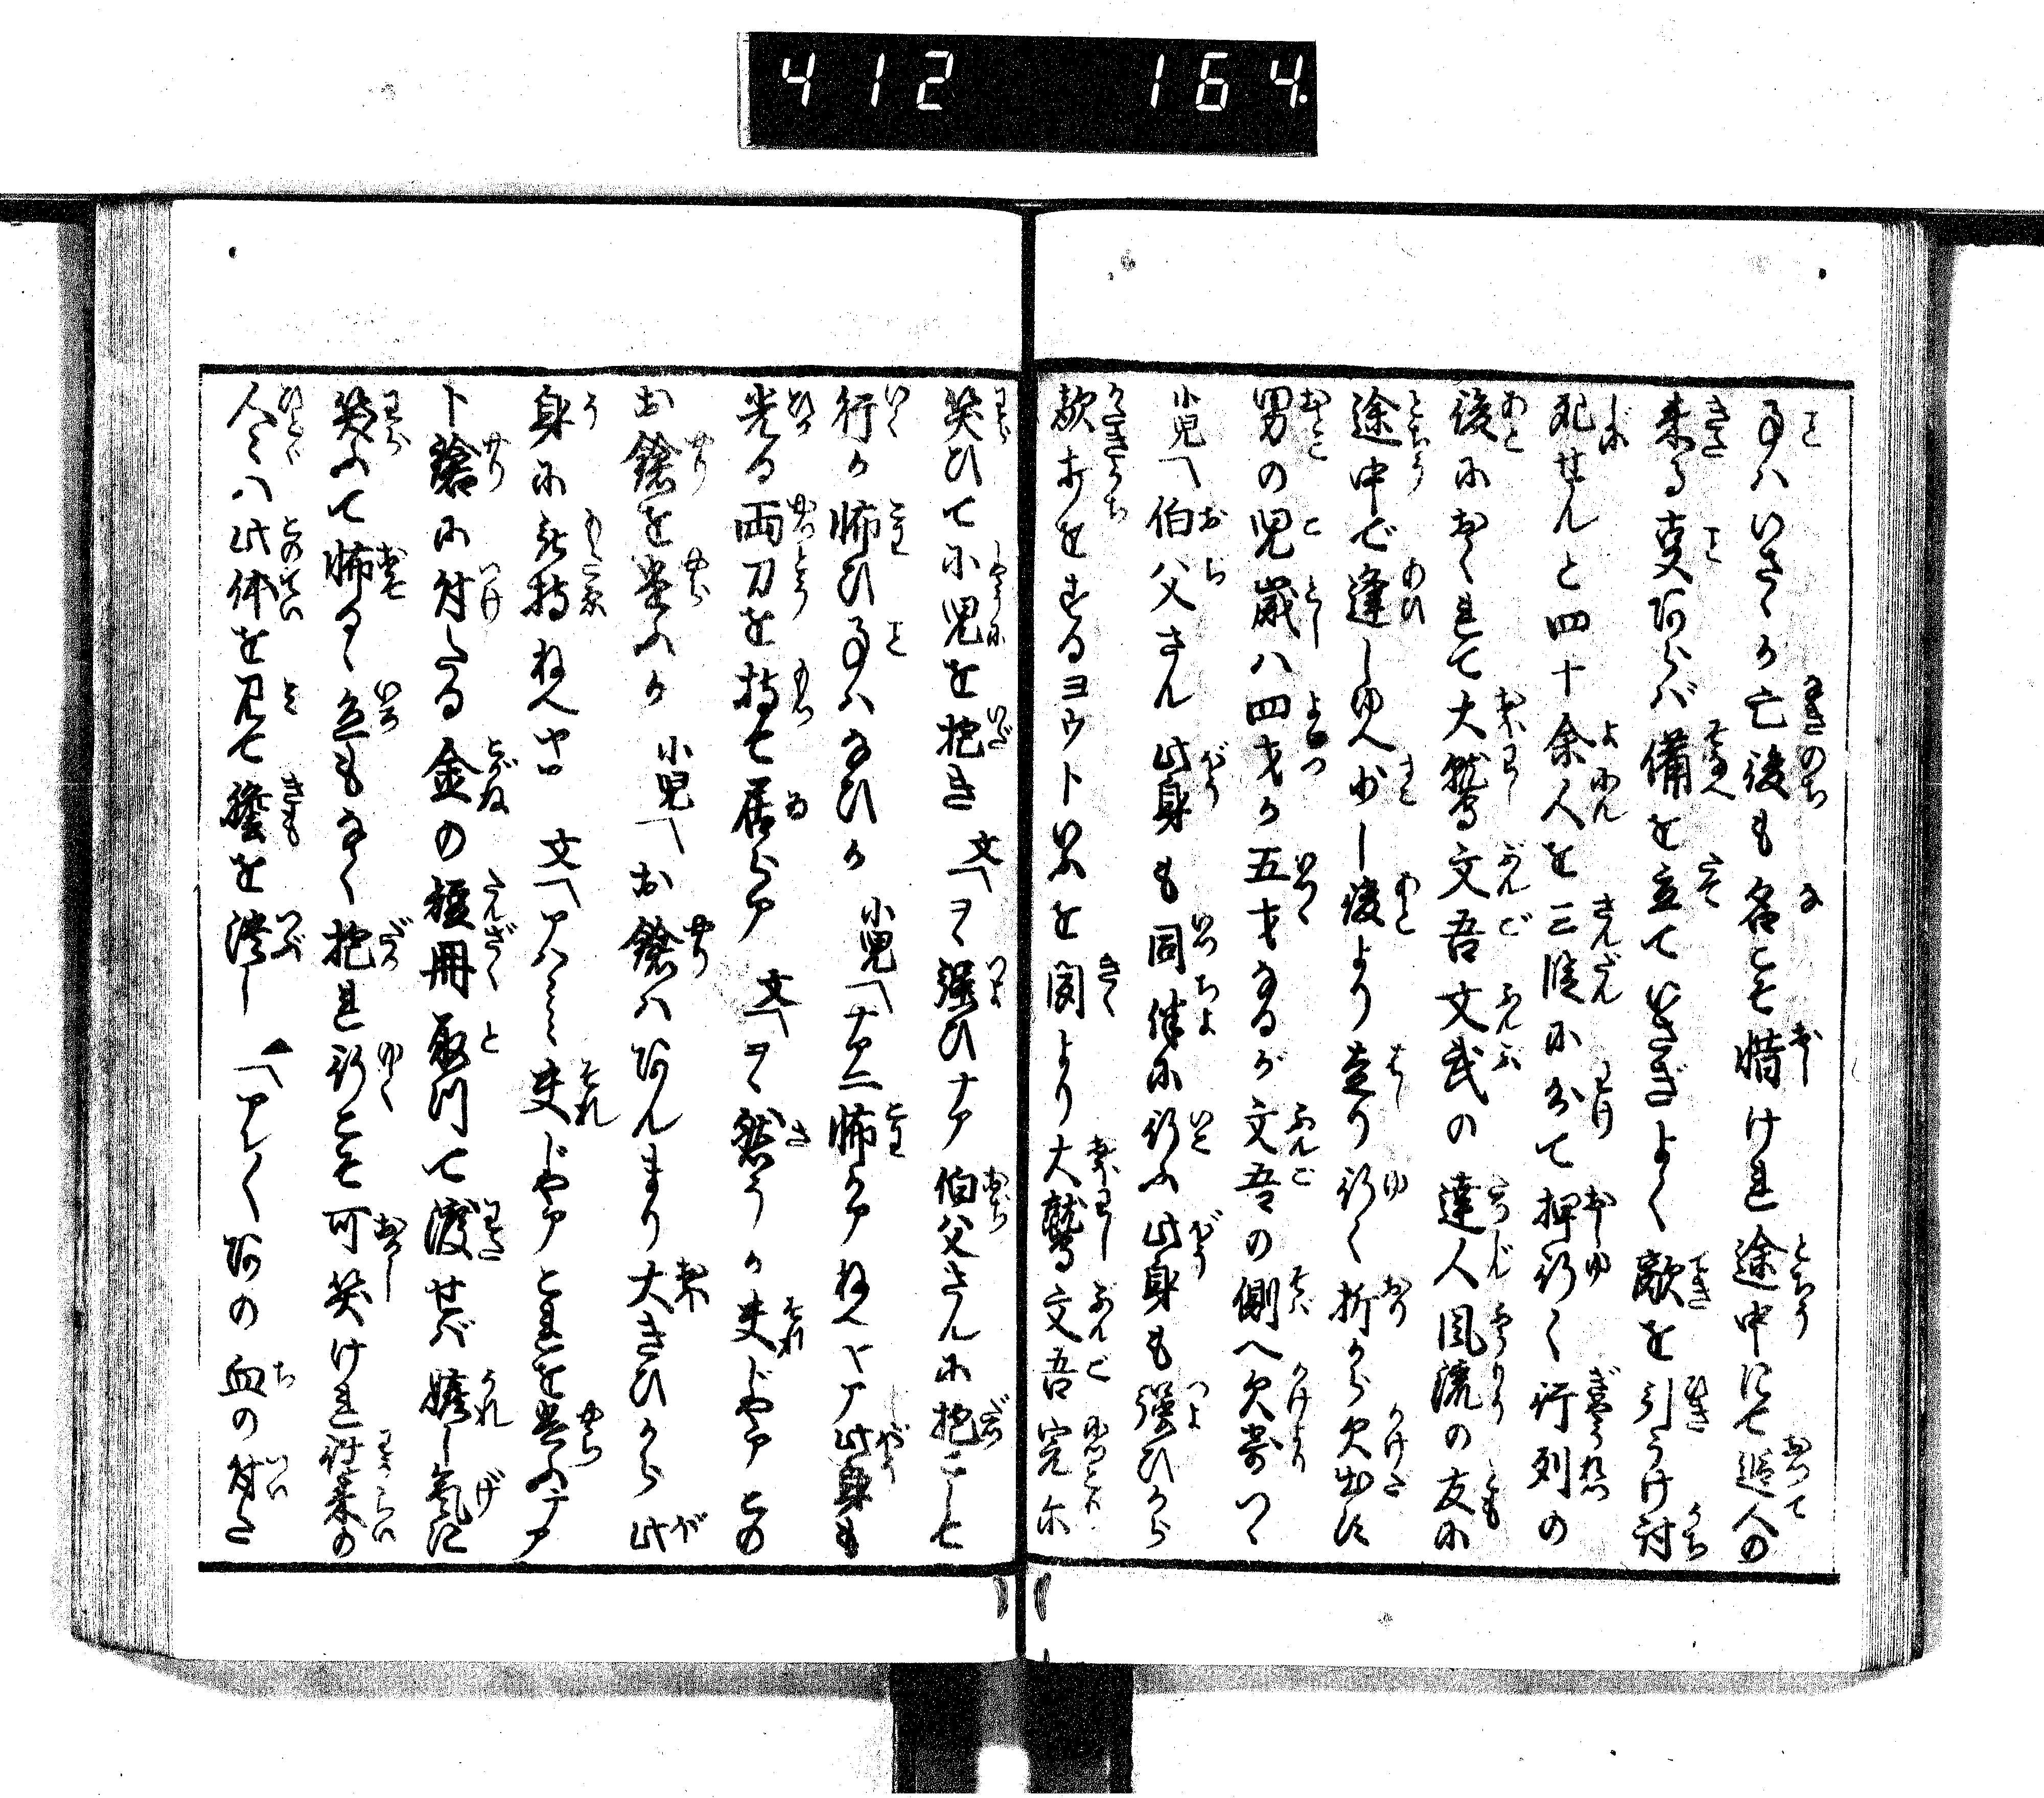 412 164.
事ハいさゝか亡後も名こそ惜けれ途中にて追人の
来る事あらバ備を立ていさぎよく敵を引うけ討
死せんと四十余人を三隊に分て押行く行列の
後におくれて大鷲文吾文武の達人風流の友に
途中で逢しゆへ少し後より走り行く折から欠出す
男の児歳ハ四才か五才なるが文吾の側へ欠寄つゝ
小児「伯父さん此身も同伴に行ふ此身も強ひから
敵打をするヨウト いふを聞より大鷲文吾完尓
笑ひて小児を抱き 文「ヲヽ強ひナア伯父さんに抱こして
行か怖ひ事ハなひか 小児「ナアニ怖かアねへヤア此身も
光る両刀を持て居らア 文「ヲヽ然うか夫じやアこの
お鎗を貰ふか 小児「お鎗ハあんまり大きひから此
身に被持ねへサ 文「アハヽヽヽ夫じやアこれを貰ふテア
ト鎗に付たる金の短冊取つて渡せバ嬉し気に
笑ふて怖るゝ色もなく抱れ行こそ可笑けれ往来の
人々ハ此体を見て膽を潰し ▲「アレ〳〵あの血の付た